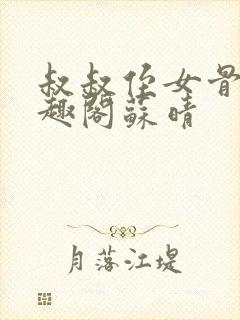 叔叔侄女骨
趣阁苏晴
月落江堤